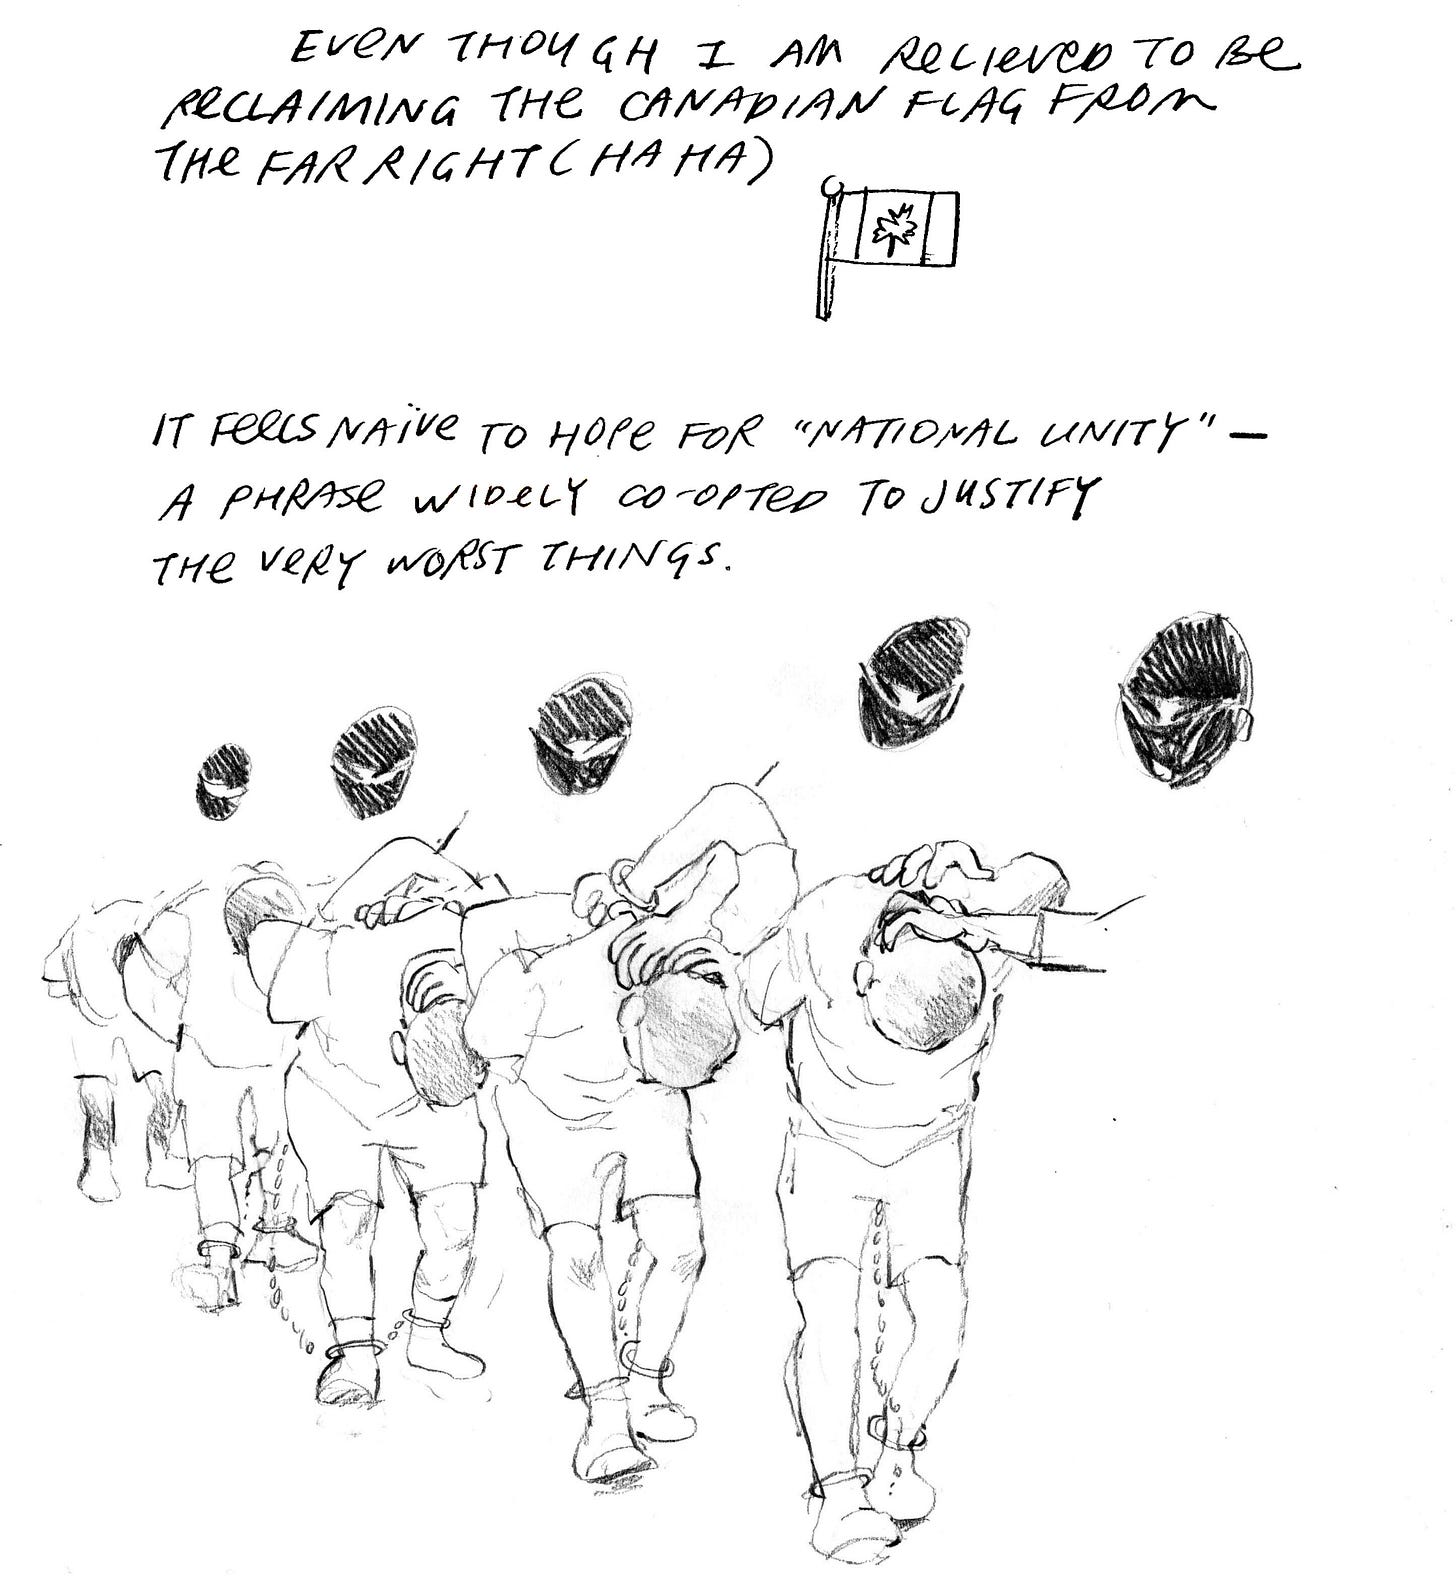 EVEN THOUGH I AM RELIEVED TO BE
RECLAIMING THE CANADIAN FLAG FROM
THE FAR RIGHT (HA HA)
IT FEELS NAÏVE TO HOPE FOR "NATIONAL UNITY" —
A PHRASE WIDELY CO-OPTED TO JUSTIFY
THE VERY WORST THINGS.